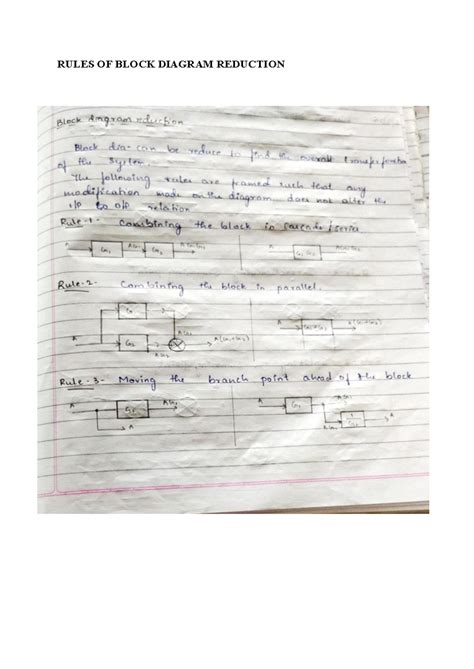 RULES OF BLOCK DIAGRAM REDUCTION
Block diagram reduction
Block dia- can be reduce to find the overall transfer
of the system.
The following rules are framed such that any
modification made on the diagram does not alter the
i/p to o/p relation
Rule-1- Combining the block in cascade/series
A G1 AG1 G2 AG1G2 A G1G2 AG1G2
Rule-2- Combining the block in parallel.
A G2 AG2 A(G1+G2) A G1+G2 A(G1+G2)
Rule-3- Moving the branch point ahead of the block
A AG1 A A AG1 A